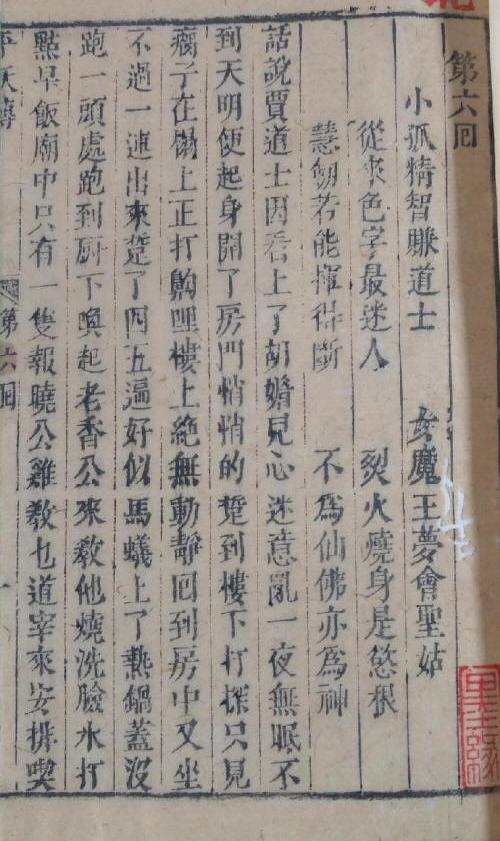 第六回
小狐精智賺道士　女魔王夢會聖姑
從來色字最迷人　烈火燒身是慾根
慧劒若能揮得斷　不爲仙佛亦爲神
話說賈道士因看上了胡媚兒心迷意亂一夜無眠不
到天明便起身開了房門悄悄的踅到樓下打探只見
瘸子在榻上正打齁哩樓上絕無動靜回到房中又坐
不過一連出來踅了四五遍好似馬蟻上了熱鍋蓋沒
跑一頭處跑到厨下喚起老香公來敎他燒洗臉水打
點早飯廟中只有一隻報曉公雞敎乜道宰來安排喫
平妖傳　第六回　一